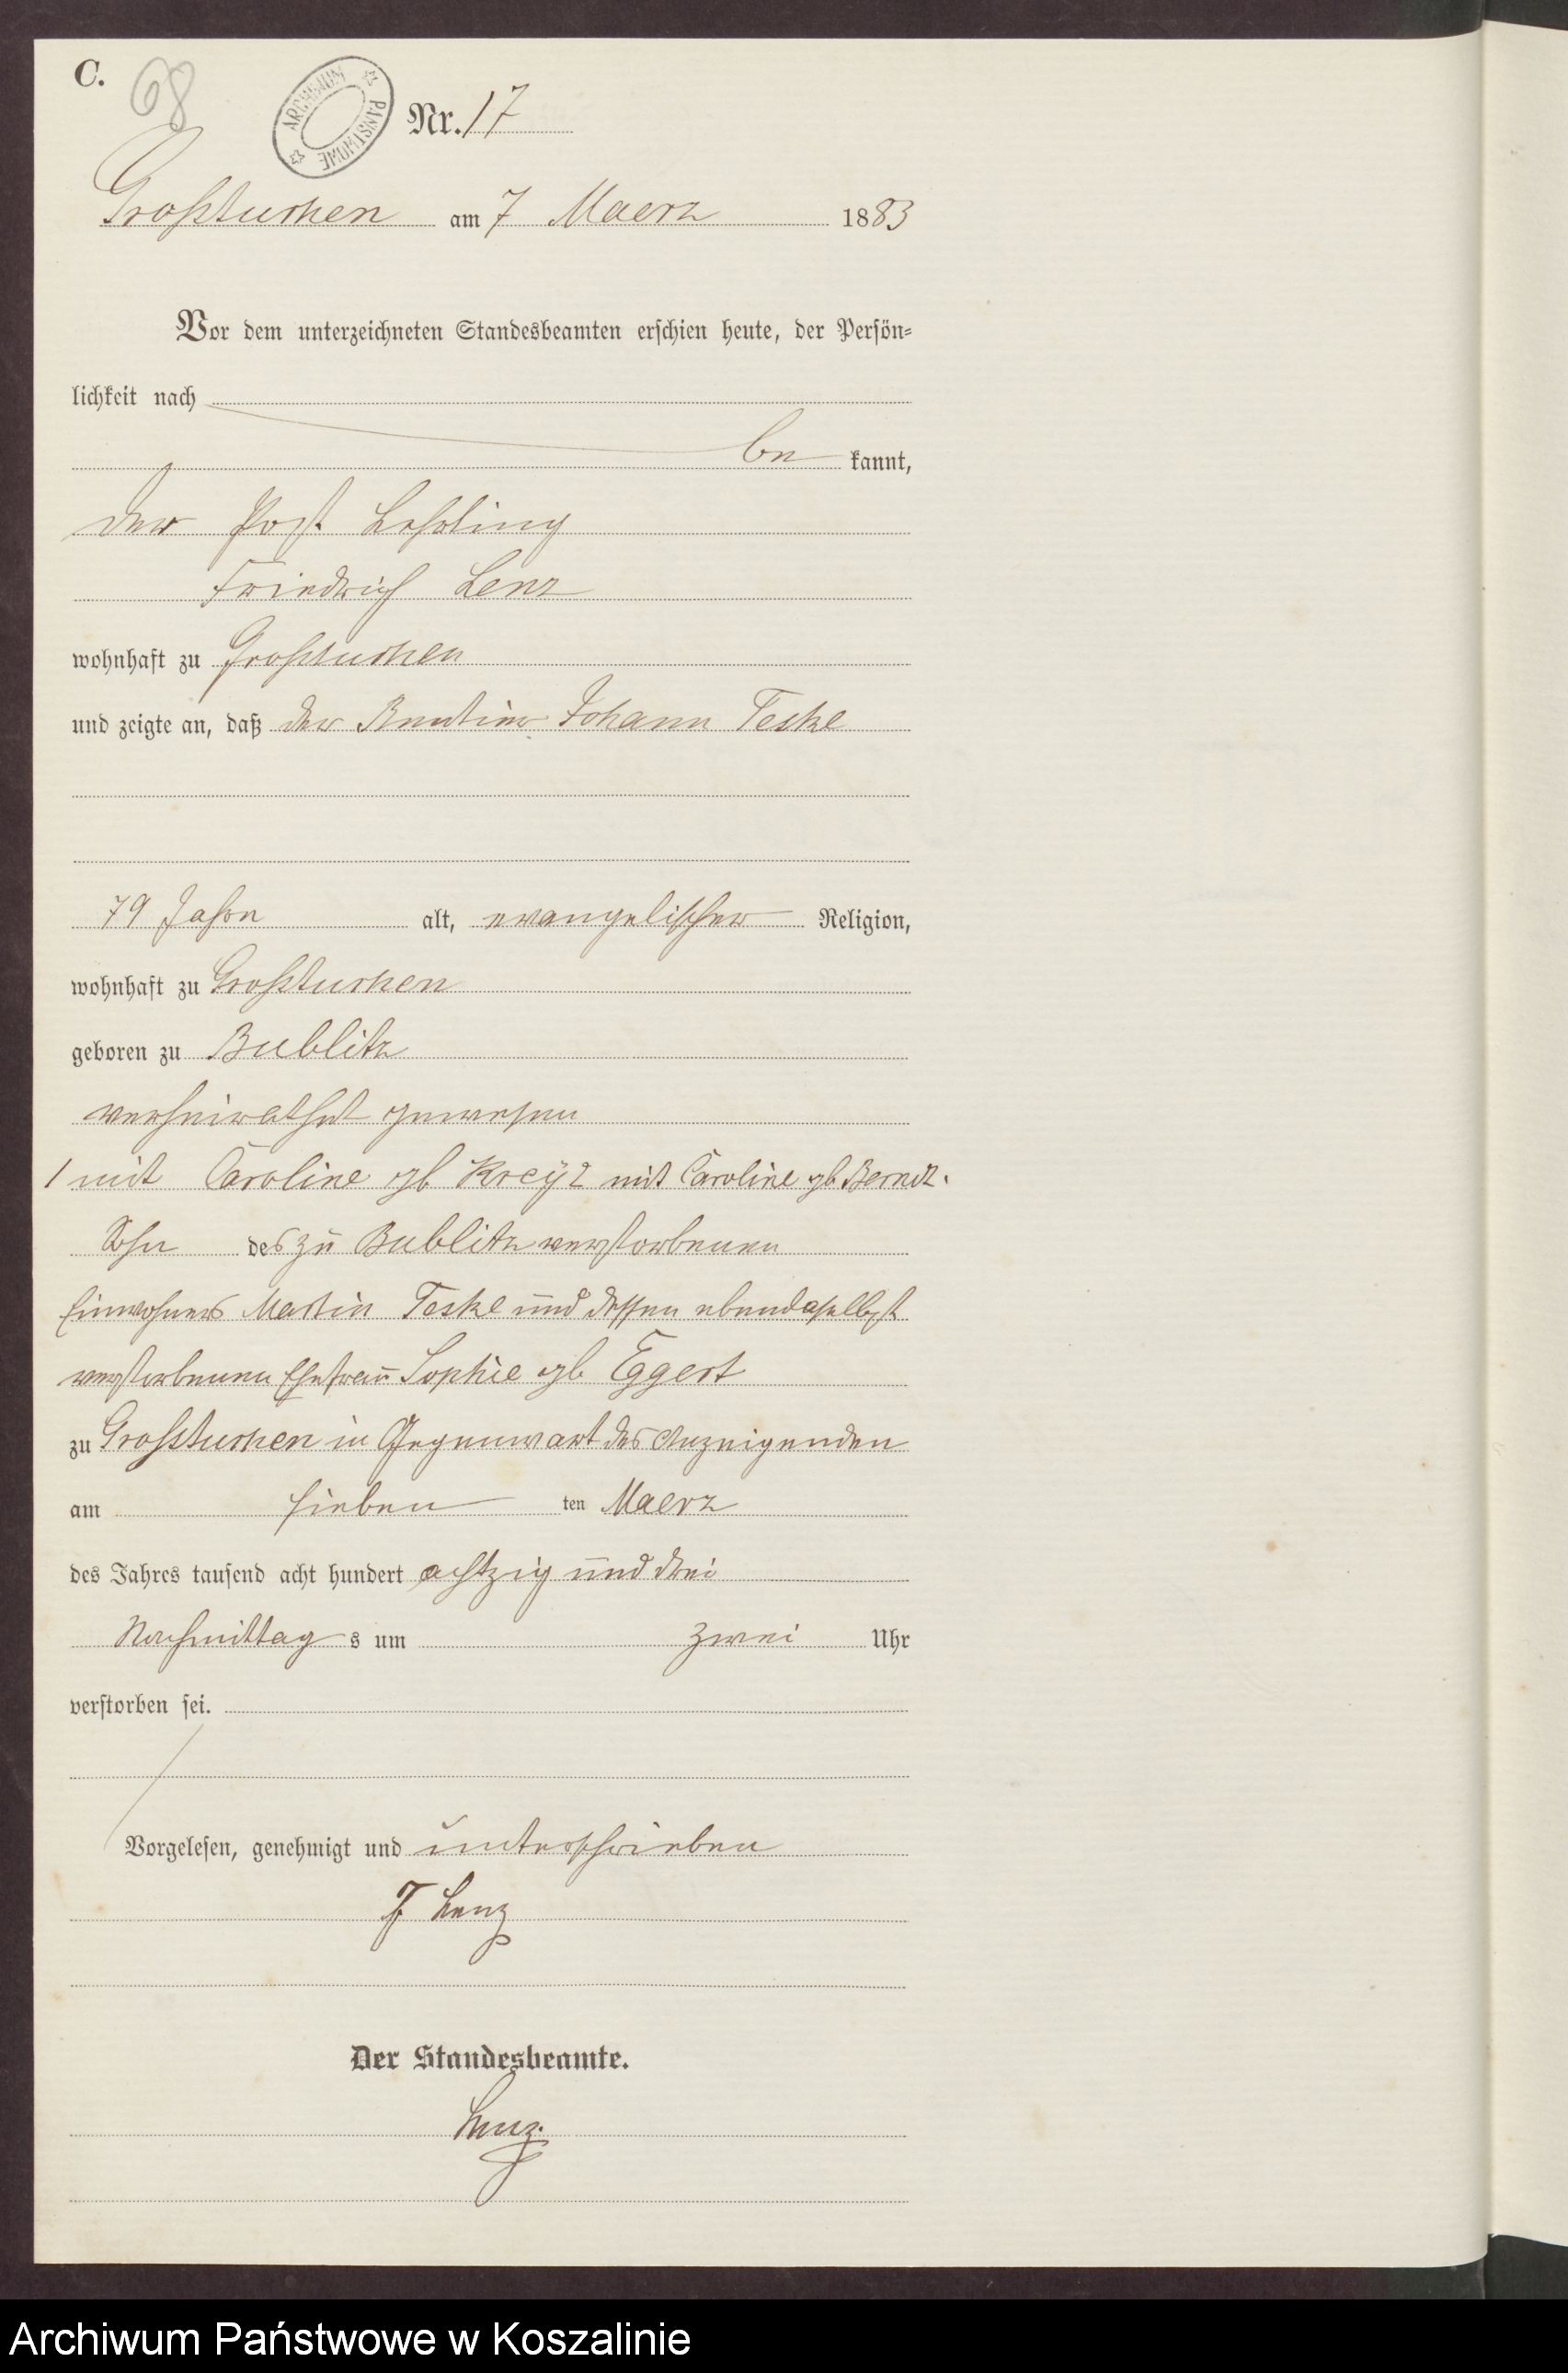 C.
68
ARCHIWUM PAŃSTWOWE
Nr. 17
Großtuchen am 7 Maerz 1883
Vor dem unterzeichneten Standesbeamten erschien heute, der Persön=
lichkeit nach
be kannt,
der Post Lehrling
Friedrich Lenz
wohnhaft zu Großtuchen
und zeigte an, daß der Rentier Johann Teske
79 Jahre alt, evangelischer Religion,
wohnhaft zu Großtuchen
geboren zu Bublitz
verheirathet gewesen
1 mit Caroline gb Krey 2 mit Caroline gb Berndt.
Sohn des zu Bublitz verstorbenen
Einwohners Martin Teske und dessen ebendaselbst
verstorbenen Ehefrau Sophie gb Eggert
zu Großtuchen in Gegenwart des Anzeigenden
am sieben ten Maerz
des Jahres tausend acht hundert achtzig und drei
Nachmittag s um zwei Uhr
verstorben sei.
Vorgelesen, genehmigt und unterschrieben
F Lenz
Der Standesbeamte.
Lenz.
Archiwum Państwowe w Koszalinie